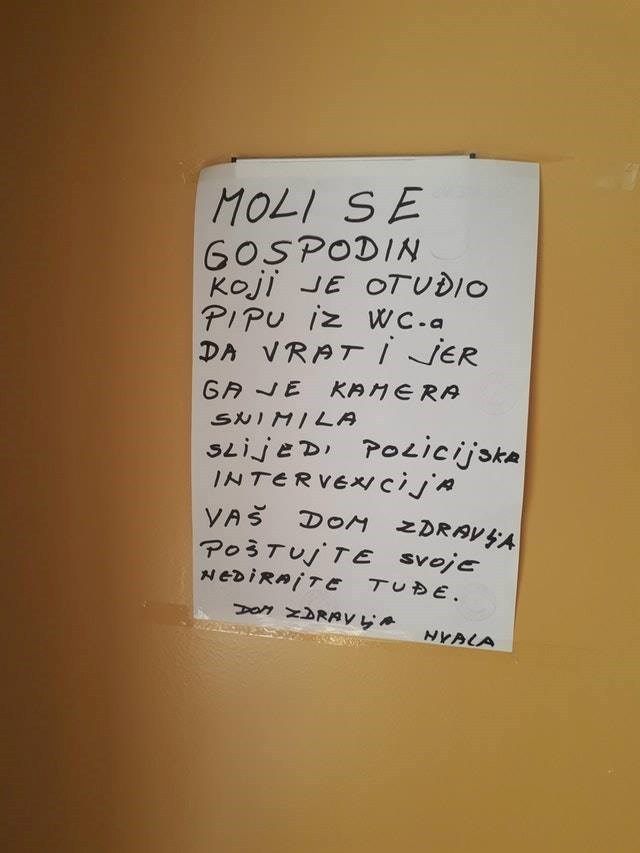 MOLI SE
GOSPODIN
KOJI JE OTUĐIO
PIPU iZ WC-a
DA VRATI JER
GA JE KAMERA
SNIMILA
SLIJEDI POLICIJSKA
INTERVENCIJA
VAŠ DOM ZDRAVLJA
POŠTUJTE SVOJE
NEDIRAJTE TUĐE.
DOM ZDRAVLJA
HVALA